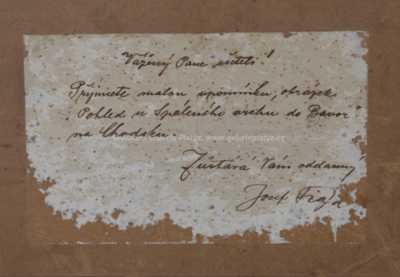 Vážený Pane učiteli!
Přijměte malou upomínku, obrázek
Pohled s Spáleného vrchu do Bavor
na Chodsku.
Zůstává Vám oddaný
Josef